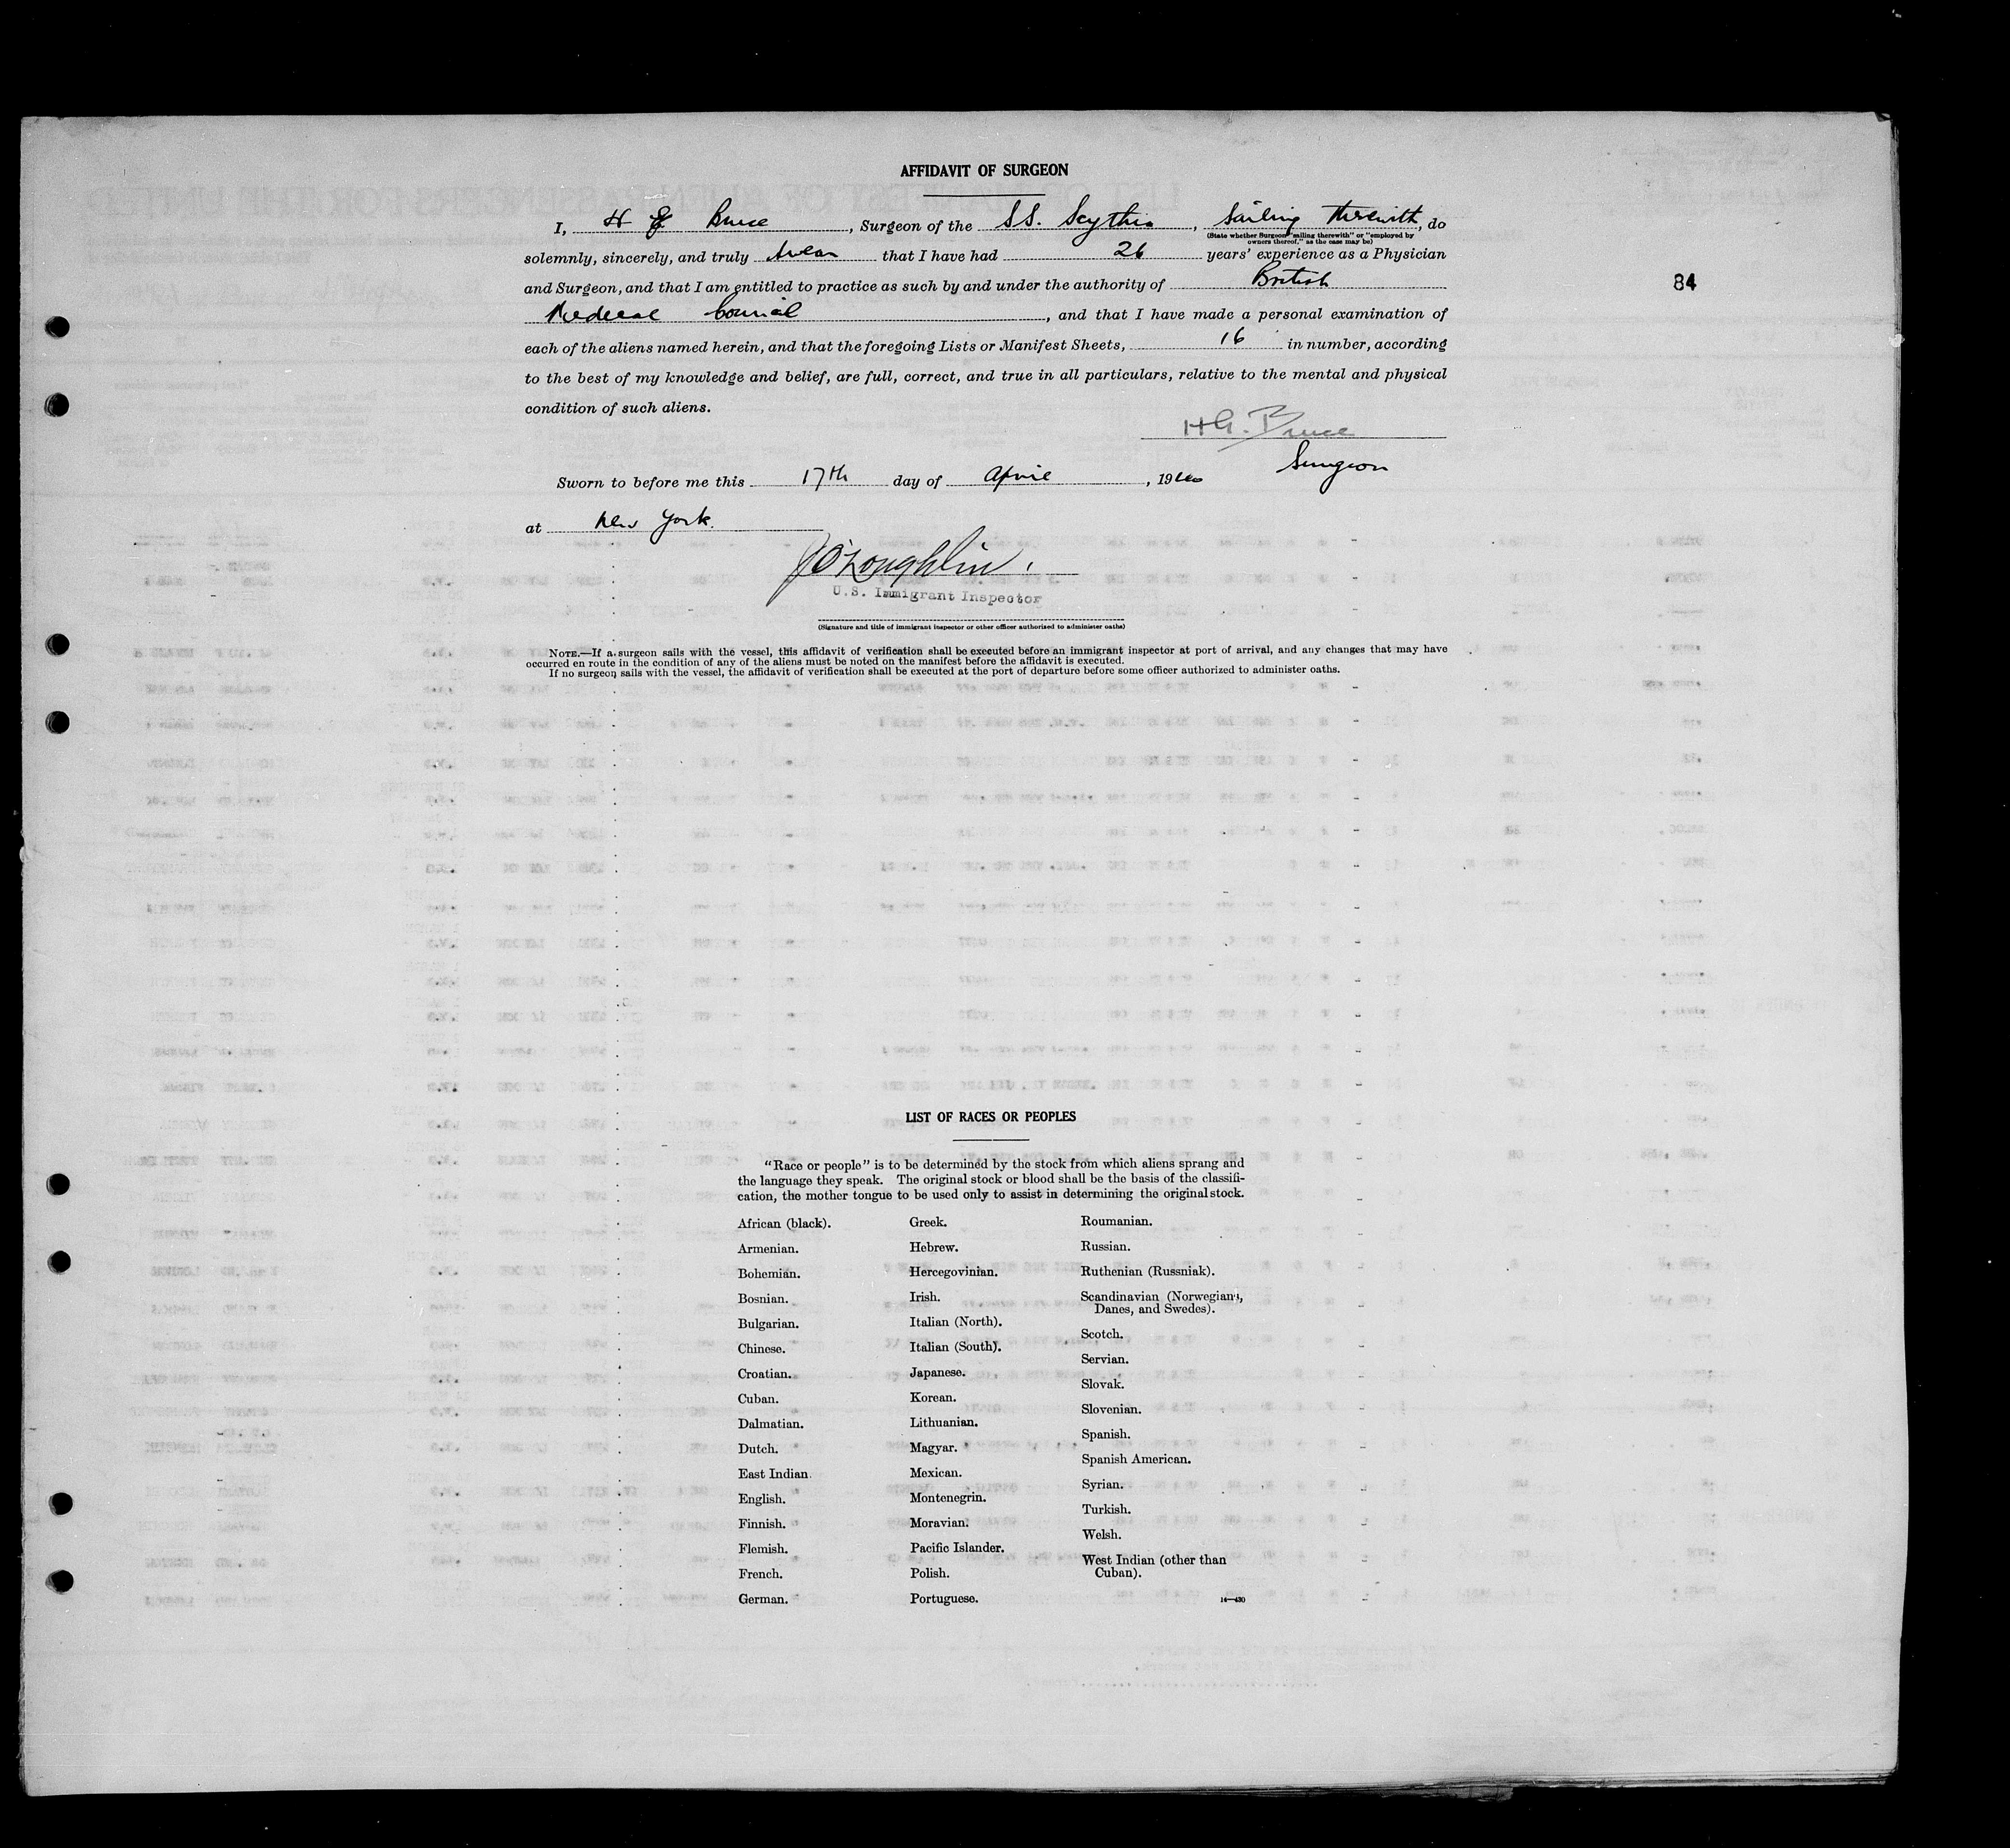 AFFIDAVIT OF SURGEON
I, H G Bruce, Surgeon of the SS. Scythia, Sailing therewith, do
(State whether Surgeon "sailing therewith" or "employed by
owners thereof," as the case may be)
solemnly, sincerely, and truly swear that I have had 26 years' experience as a Physician
84
and Surgeon, and that I am entitled to practice as such by and under the authority of British
Medical Council, and that I have made a personal examination of
each of the aliens named herein, and that the foregoing Lists or Manifest Sheets, 16 in number, according
to the best of my knowledge and belief, are full, correct, and true in all particulars, relative to the mental and physical
condition of such aliens.
H G. Bruce
Surgeon
Sworn to before me this 17th day of April, 1940
at New York.
J O'Loughlin.
U.S. Immigrant Inspector
(Signature and title of immigrant inspector or other officer authorized to administer oaths)
NOTE.—If a surgeon sails with the vessel, this affidavit of verification shall be executed before an immigrant inspector at port of arrival, and any changes that may have
occurred en route in the condition of any of the aliens must be noted on the manifest before the affidavit is executed.
If no surgeon sails with the vessel, the affidavit of verification shall be executed at the port of departure before some officer authorized to administer oaths.
LIST OF RACES OR PEOPLES
"Race or people" is to be determined by the stock from which aliens sprang and
the language they speak. The original stock or blood shall be the basis of the classifi-
cation, the mother tongue to be used only to assist in determining the original stock.
African (black).
Armenian.
Bohemian.
Bosnian.
Bulgarian.
Chinese.
Croatian.
Cuban.
Dalmatian.
Dutch.
East Indian.
English.
Finnish.
Flemish.
French.
German.
Greek.
Hebrew.
Hercegovinian.
Irish.
Italian (North).
Italian (South).
Japanese.
Korean.
Lithuanian.
Magyar.
Mexican.
Montenegrin.
Moravian.
Pacific Islander.
Polish.
Portuguese.
Roumanian.
Russian.
Ruthenian (Russniak).
Scandinavian (Norwegians,
Danes, and Swedes).
Scotch.
Servian.
Slovak.
Slovenian.
Spanish.
Spanish American.
Syrian.
Turkish.
Welsh.
West Indian (other than
Cuban).
14—430